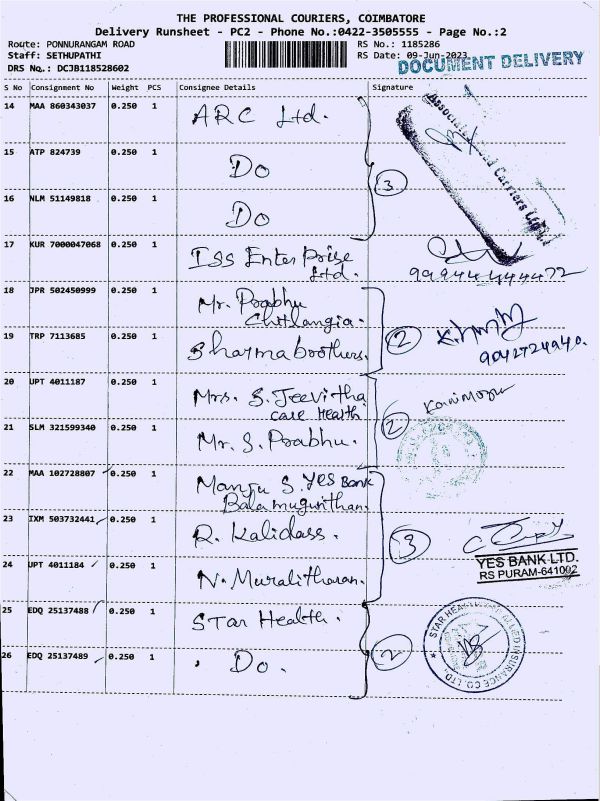 THE PROFESSIONAL COURIERS, COIMBATORE
Delivery Runsheet - PC2 - Phone No.:0422-3505555 - Page No.:2
Route: PONNURANGAM ROAD RS No.: 1185286
Staff: SETHUPATHI RS Date: 09-Jun-2023
DRS No.: DCJB118528602
DOCUMENT DELIVERY
S No Consignment No Weight PCS Consignee Details Signature
14 MAA 860343037 0.250 1 ARC Ltd.
15 ATP 824739 0.250 1 Do
3
16 NLM 51149818 0.250 1 Do
Associated Road Carriers Limited
17 KUR 7000047068 0.250 1 Iss Enterprise
Ltd.
18 JPR 502450999 0.250 1 Mr. Prabhu
Chitlangia.
19 TRP 7113685 0.250 1 Sharma brothers. 2
9042724940.
20 UPT 4011187 0.250 1 Mrs. S. Jeevitha
care Health
2
21 SLM 321599340 0.250 1 Mr. S. Prabhu.
22 MAA 102728807 0.250 1 Manju S. Yes Bank
Balamugunthan.
23 IXM 503732441 0.250 1 R. Kalidass. 3
24 UPT 4011184 0.250 1 N. Muralitharan.
YES BANK LTD.
RS PURAM-641002
25 EDQ 25137488 0.250 1 Star Health.
26 EDQ 25137489 0.250 1 Do. 2
STAR HEALTH AND ALLIED INSURANCE CO. LTD.